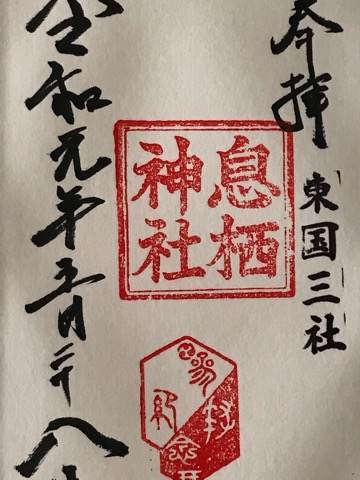 奉拝
東国三社
息栖
神社
令和元年五月二十八日